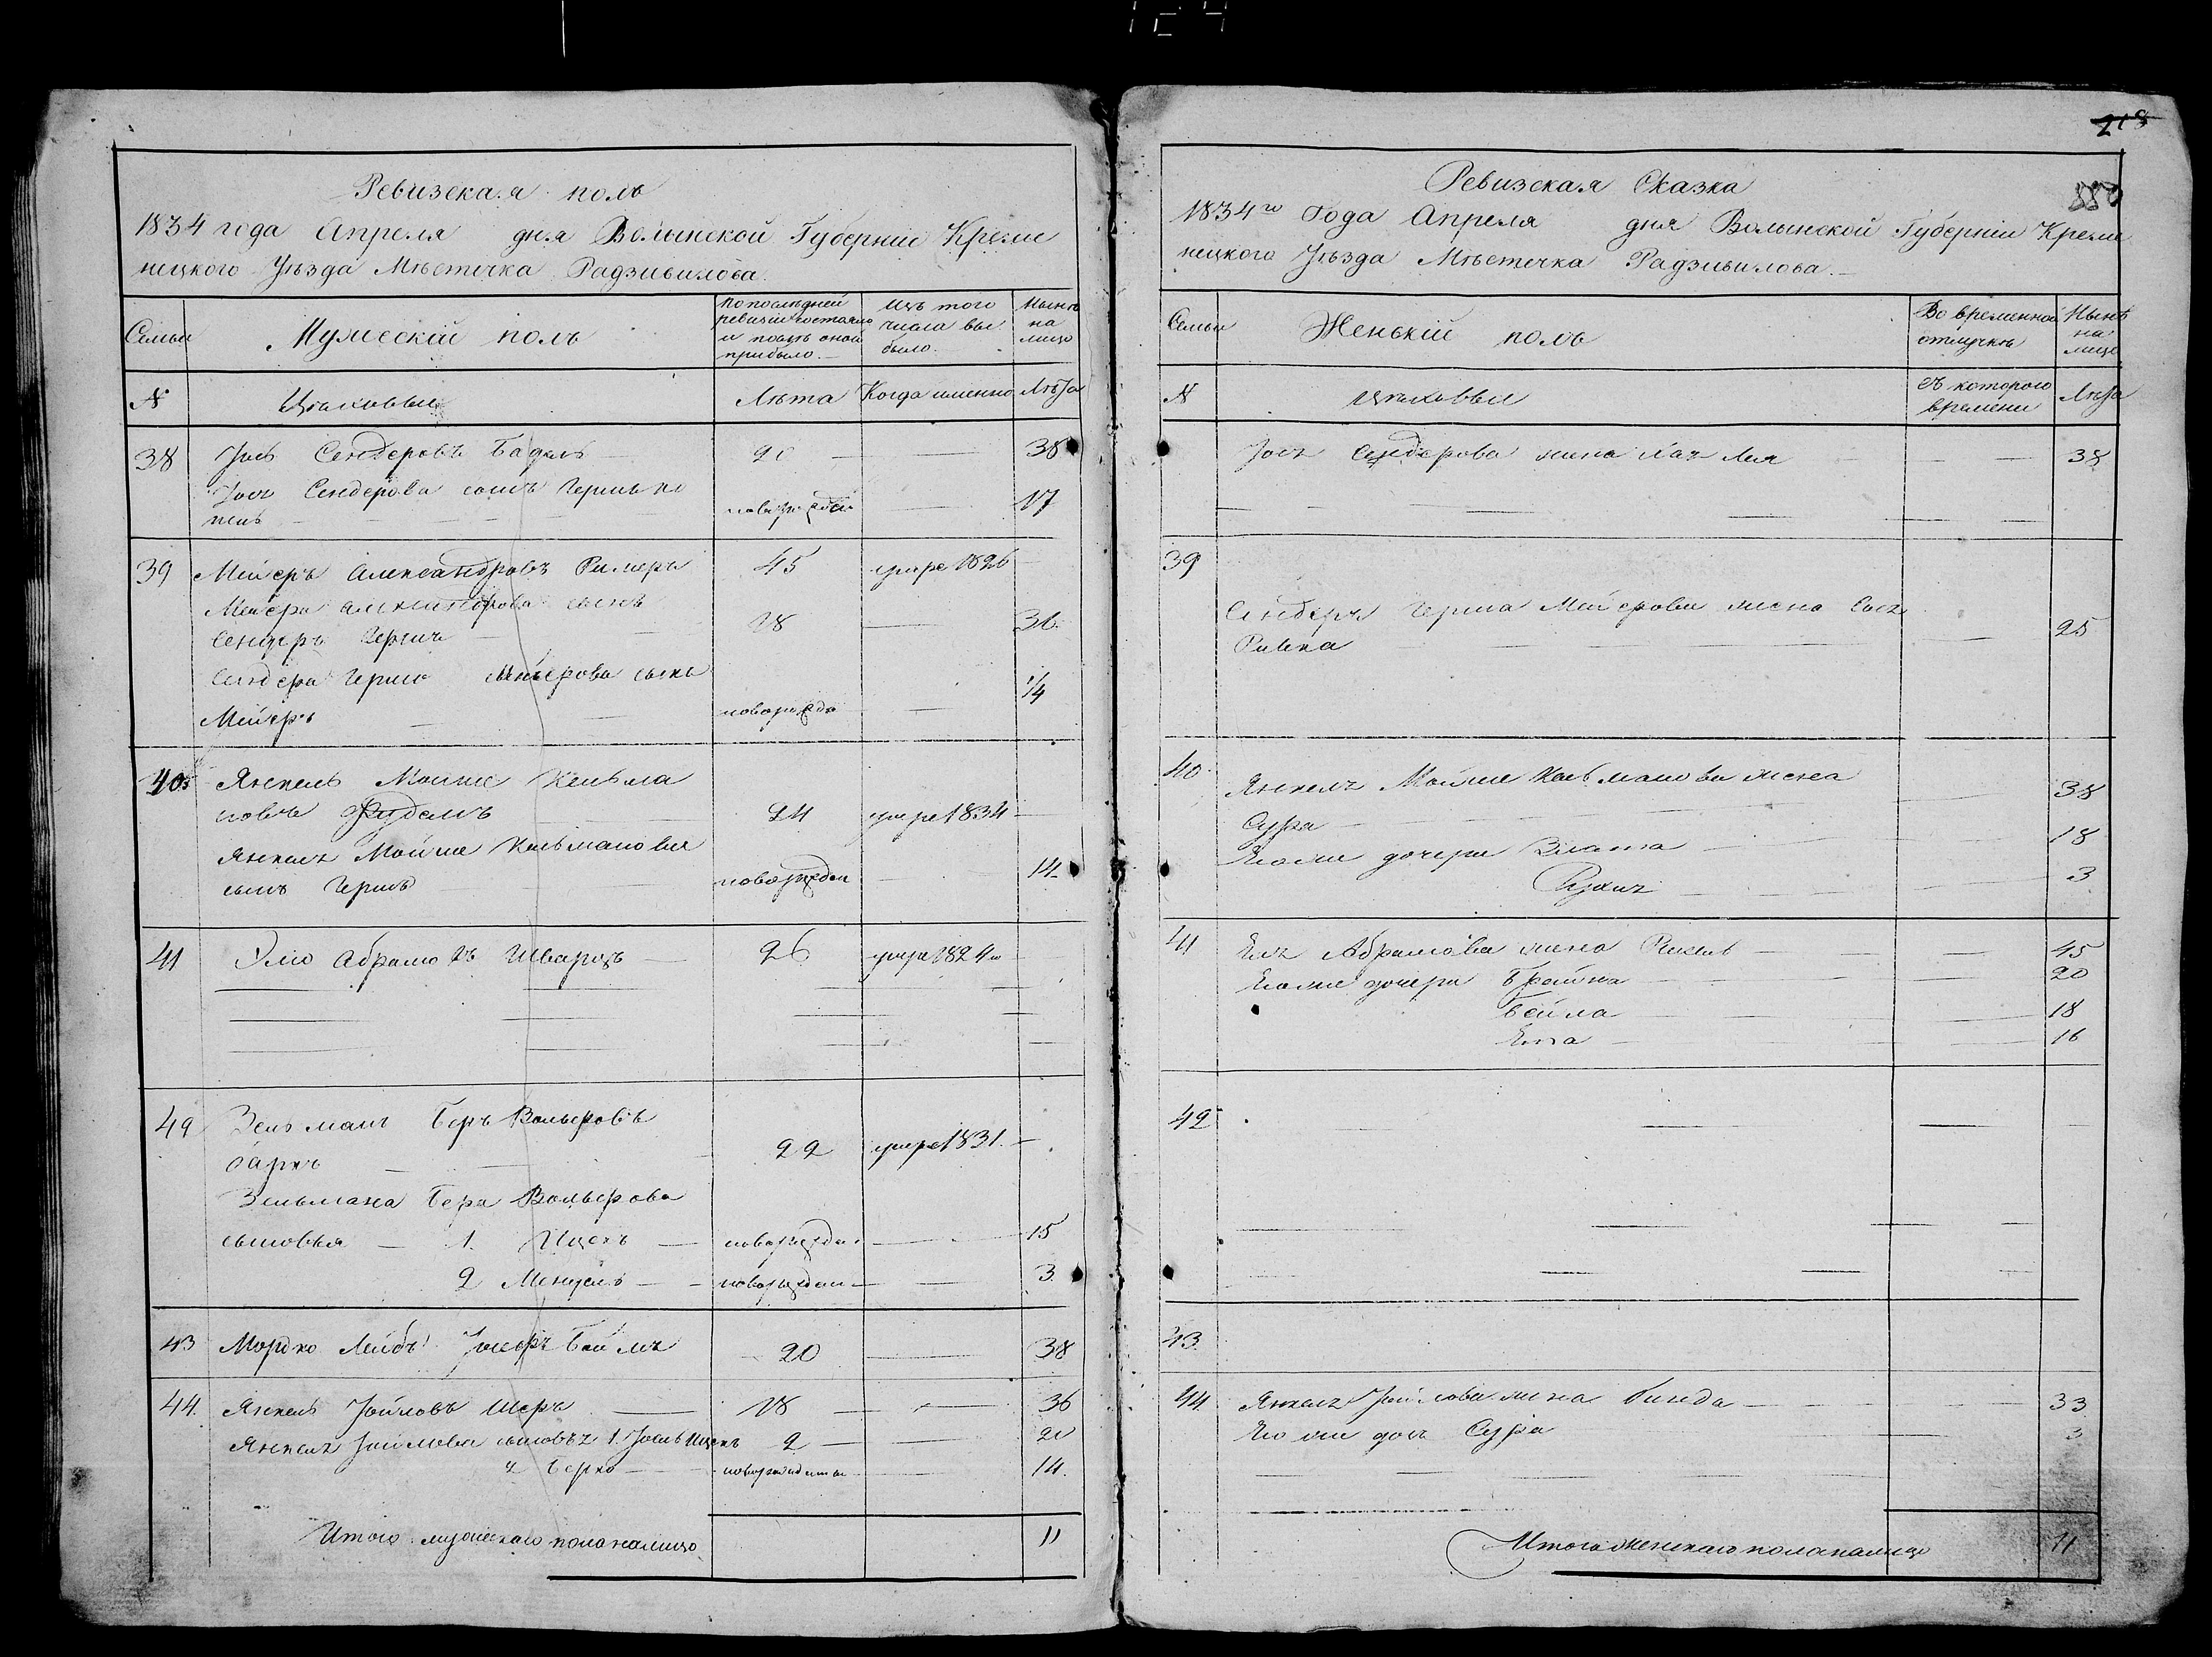 218
880
Ревизская полъ
1834 года Апреля дня Волынской Губерніи Креме
нецкого Уѣзда Мѣстечка Радзивилова
Семьи
Мужескій полъ
По последней
ревизіи состояло
и послѣ оной
прибыло.
Изъ того
числа вы
было.
Нынѣ
на
лицо
№
Цѣиховвы
Лѣта
Когда именно
Лѣта
38 Іось Сендеровъ 20 — — 38
Іося Сендерова сынъ Гершъ
новорожден — 17
39 Мейеръ Александровъ Ример 45 умре 1826
Мейера Александрова сынъ
Сендеръ Герш 18 — 36
Сендера Герша Мейерова сынъ
Мейеръ — — новорожде — 1/4
40 Янкель Мошке Кельма
новъ 24 умре 1834 —
Янкеля Мойше Кельманова
сынъ Гершъ — новорожден — 14
41 Элю Абрамовъ Шварцъ — 26 умре 1824
42 Зельманъ Беръ Вольфовъ
22 умре 1831 —
Зельмана Бера Вольфова
сыновья — 1. Ицекъ — новорожден — 15
2 Мендель — новорожден — 3
43 Мордко Лейбъ 20 — 38
44. Янкель Іойловъ Шеръ — 18 — 36
Янкеля Іойлова сыновья 1. Іосъ Ицекъ 2 — 20
2 Берко — новорожденны — 14.
Итого мужескаго пола налицо 11
Ревизская Сказка
1834го Года Апреля дня Волынской Губерніи Креме
нецкого Уѣзда Мѣстечка Радзивилова. —
Семьи
Женскій полъ
Во временной
отлучкѣ
Нынѣ
на
лицо
№
съ которого
времени
Лѣта
Іося Сендерова жена Хая Лея — — 38
39
Сендера Герша Мейерова жена Сося
Ривка — — 25
40 Янкеля Мойше Кельманова жена
Сура — 38
Его же дочери Злата — 18
Рухля — 3
41 Еля Абрамова жена Рикль — 45
Его же дочери Брайна — 20
Бейла — 18
Ента — 16
42
43.
44. Янкеля Іойлова жена Гинда — 33
Его же дочь Сура 3
Итого женскаго пола налицо 11